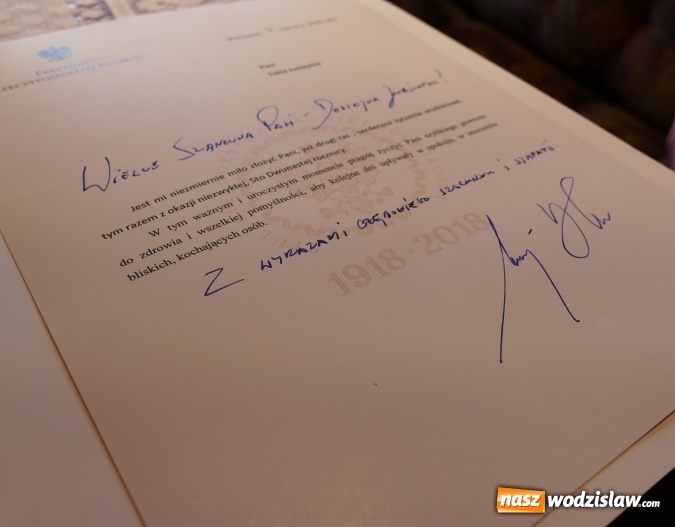 PREZYDENT
RZECZYPOSPOLITEJ POLSKIEJ
Pani
WIELCE SZANOWNA PANI - DOSTOJNA JUBILATKO!
Jest mi niezmiernie miło złożyć Pani, już drugi raz - serdeczne życzenia urodzinowe,
tym razem z okazji niezwykłej, Sto Dwunastej rocznicy.
W tym ważnym i uroczystym momencie pragnę życzyć Pani szybkiego powrotu
do zdrowia i wszelkiej pomyślności, aby kolejne dni upływały w spokoju, w otoczeniu
bliskich, kochających osób.
Z WYRAZAMI GŁĘBOKIEGO SZACUNKU I
1918·2018
nasz wodzislaw.com